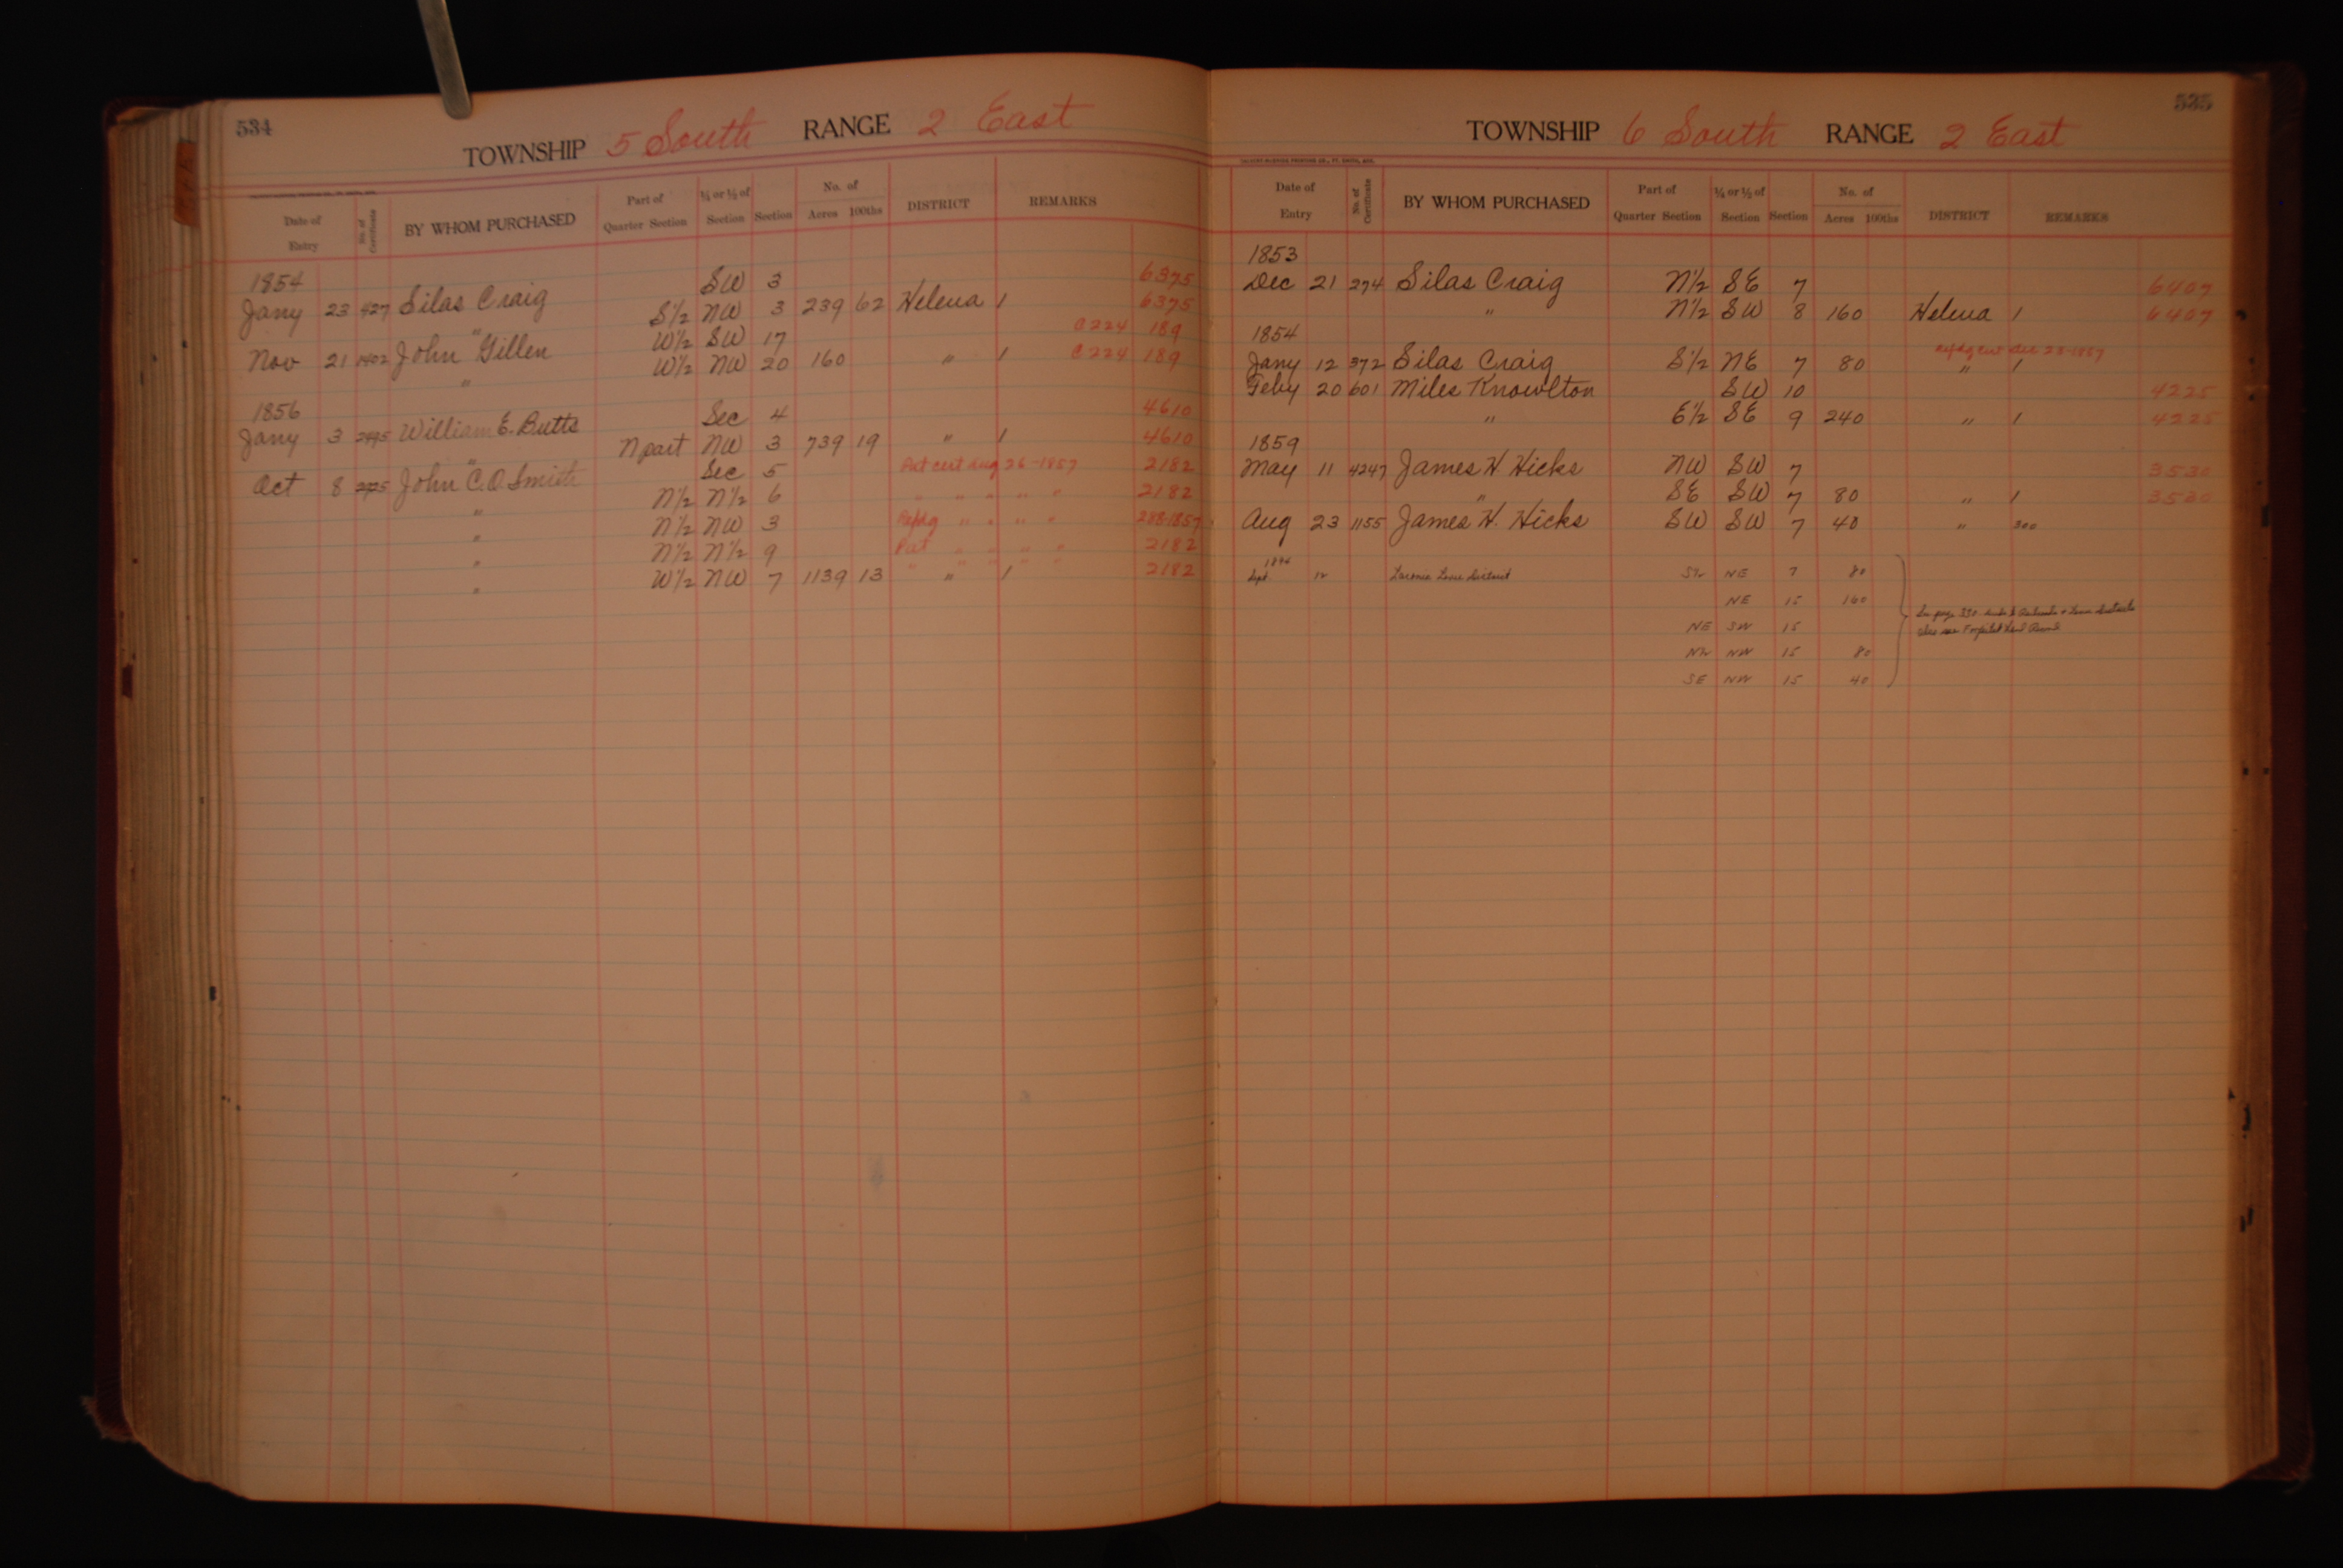 534
TOWNSHIP 5 South RANGE 2 East
Date of Entry No. of Certificate BY WHOM PURCHASED Part of Quarter Section ¼ or ½ of Section Section No. of Acres 100ths DISTRICT REMARKS
1854 SW 3 6375
Jany 23 427 Silas Craig S½ NW 3 239 62 Helena 1 6375
" W½ SW 17 C224 189
Nov 21 1402 John Gillen W½ NW 20 160 " 1 C224 189
"
1856 Sec 4 4610
Jany 3 William E. Butts N part NW 3 739 19 " 1 4610
" Sec 5 Pat cert Aug 26-1857 2182
Oct 8 John C. O. Smith N½ N½ 6 " " " " " 2182
" N½ NW 3 " " " "
" N½ N½ 9 Pat " " " " 2182
" W½ NW 7 1139 13 " 1 " " " " " 2182
"
535
TOWNSHIP 6 South RANGE 2 East
Date of Entry No. of Certificate BY WHOM PURCHASED Part of Quarter Section ¼ or ½ of Section Section No. of Acres 100ths DISTRICT REMARKS
1853
Dec 21 274 Silas Craig N½ SE 7 6407
" N½ SW 8 160 Helena 1 6407
1854
Jany 12 372 Silas Craig S½ NE 7 80 " 1
Feby 20 601 Miles Knowlton SW 10 4225
" E½ SE 9 240 " 1 4225
1859
May 11 4247 James H Hicks NW SW 7 3530
" SE SW 7 80 " 1 3530
Aug 23 1155 James H. Hicks SW SW 7 40 " 300
Sept. 12 Laconia Levee District S½ NE 7 80
NE 15 160
NE SW 15
N½ NW 15 80
SE NW 15 40